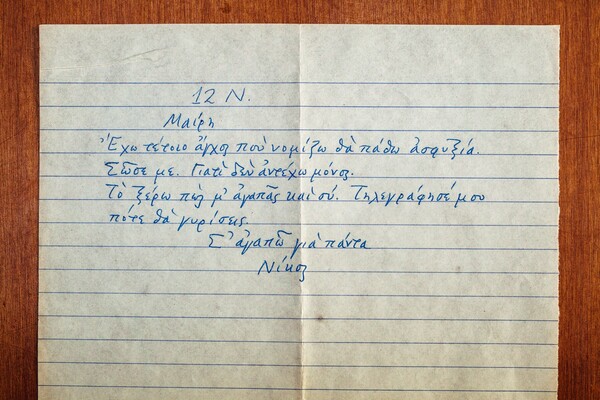 12 Ν.
Μαίρη
Ἔχω τέτοιο ἄγχος ποὺ νομίζω θὰ πάθω ἀσφυξία.
Σῶσε με. Γιατὶ δὲν ἀντέχω μόνος.
Τὸ ξέρω πὼς μ' ἀγαπᾶς καὶ σύ. Τηλεγράφησέ μου
πότε θὰ γυρίσεις.
Σ' ἀγαπῶ γιὰ πάντα
Νίκος